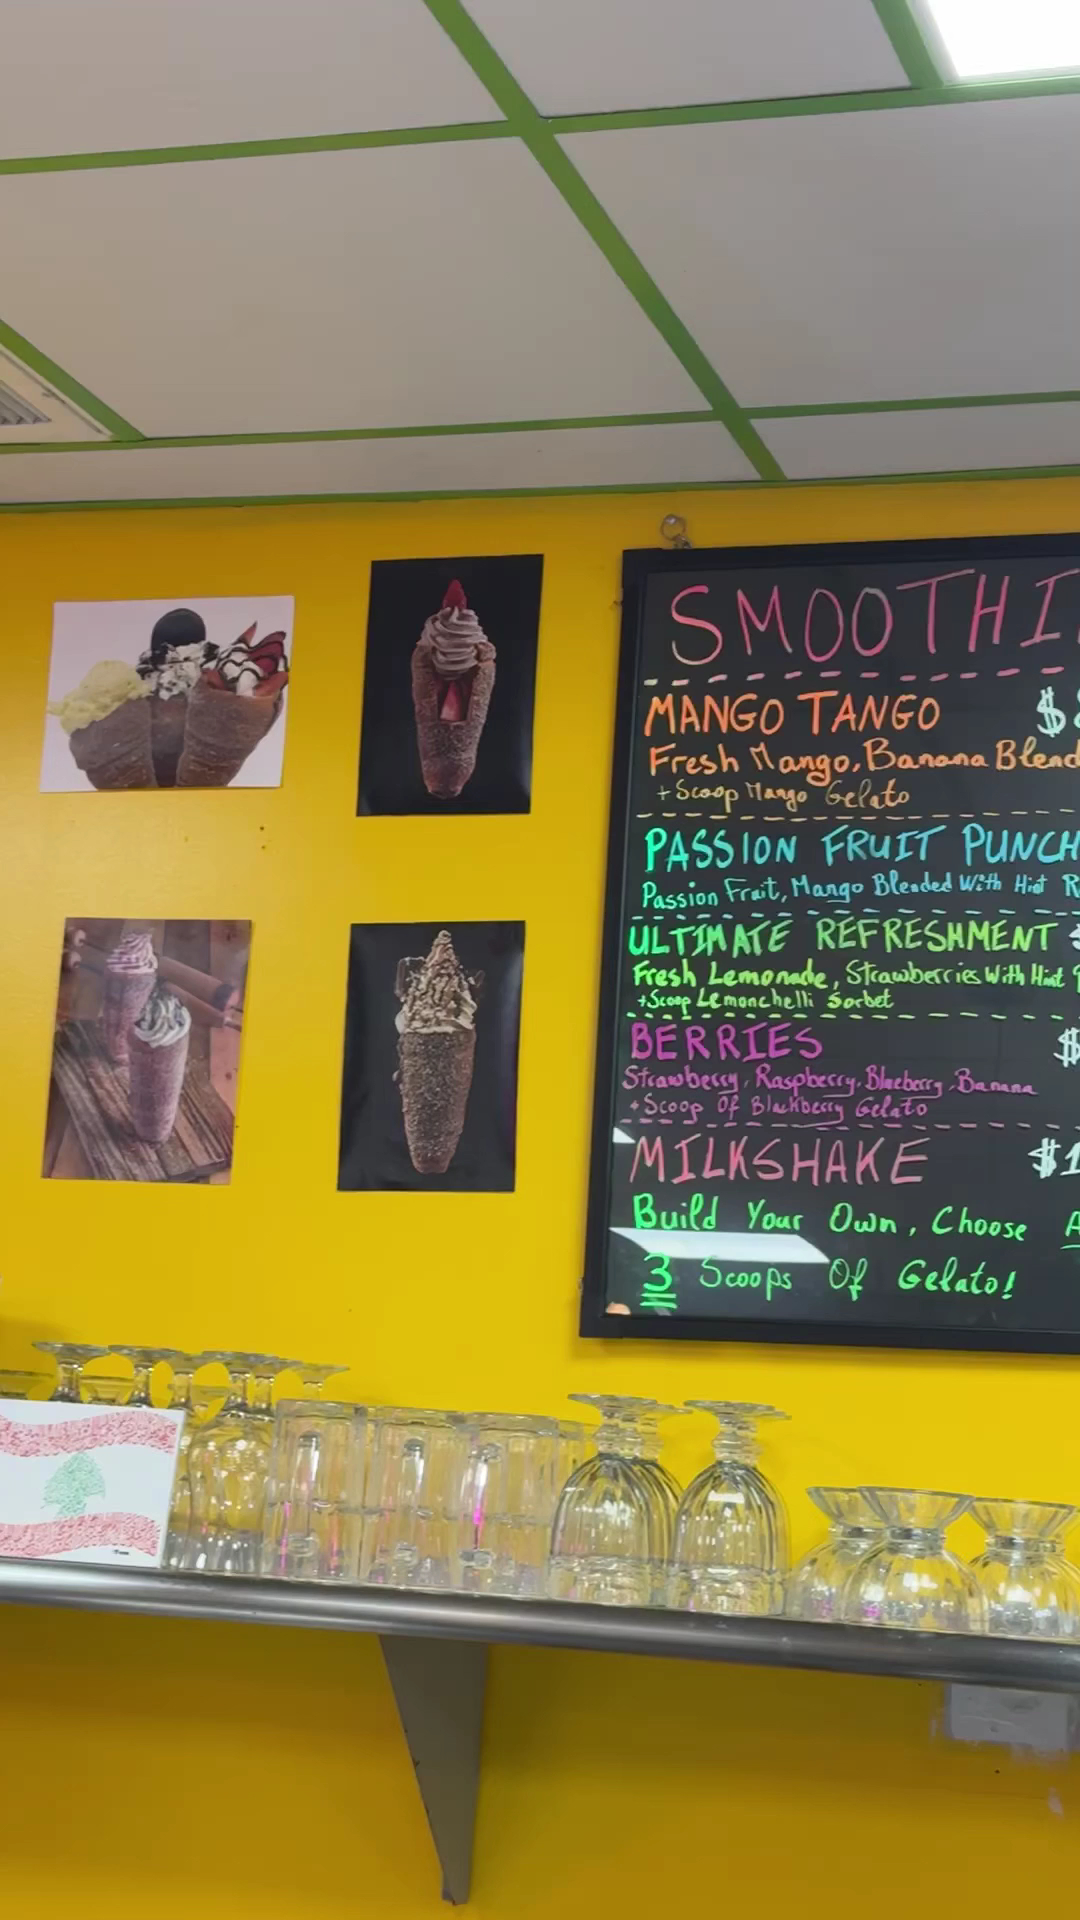 SMOOTHI
MANGO TANGO
Fresh Mango, Banana Blend
+ Scoop Mango Gelato
PASSION FRUIT PUNCH
Passion Fruit, Mango Blended With Hint
ULTIMATE REFRESHMENT
Fresh Lemonade, Strawberries With Hint
+Scoop Lemonchelli Sorbet
BERRIES $
Strawberry, Raspberry, Blueberry, Banana
+ Scoop Of Blackberry Gelato
MILKSHAKE $1
Build Your Own, Choose A
3 Scoops Of Gelato!